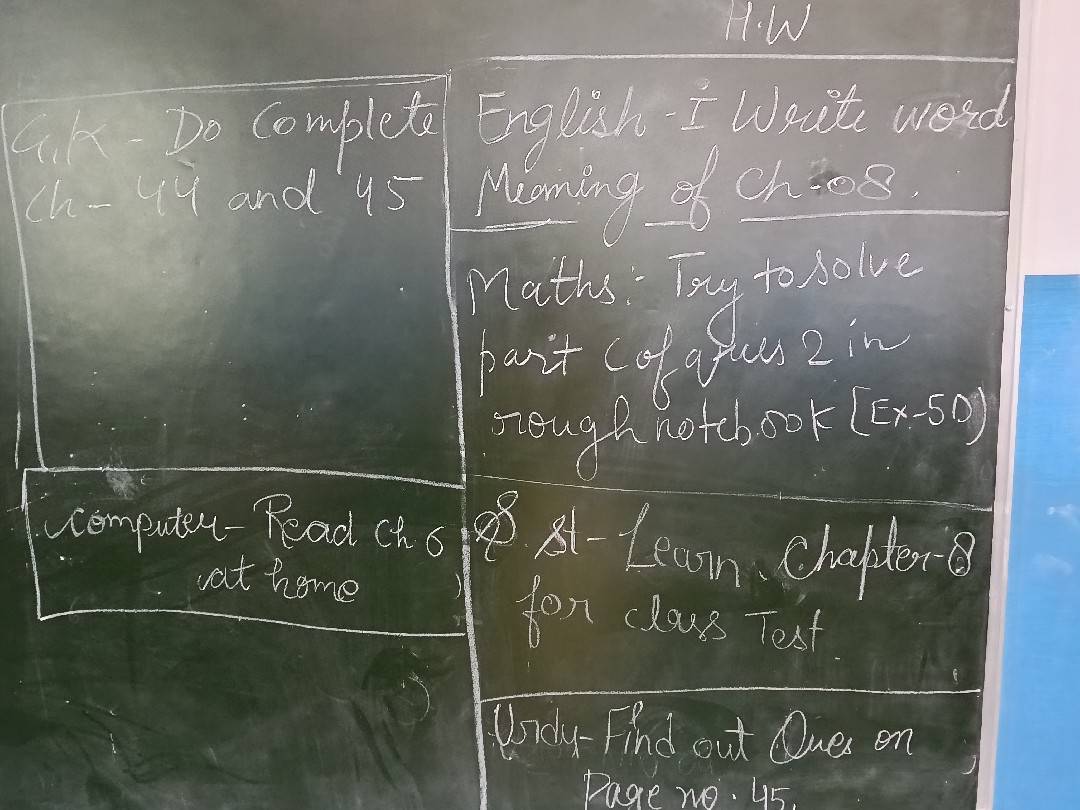 H.W
G.K - Do Complete
Ch - 44 and 45
Computer - Read Ch. 6
at home
English - I Write word
Meaning of Ch-08.
Maths:- Try to solve
part C of ques 2 in
rough notebook [Ex-5D)
S. St - Learn Chapter-8
for class Test.
Urdu - Find out Ques on
Page no. 45.